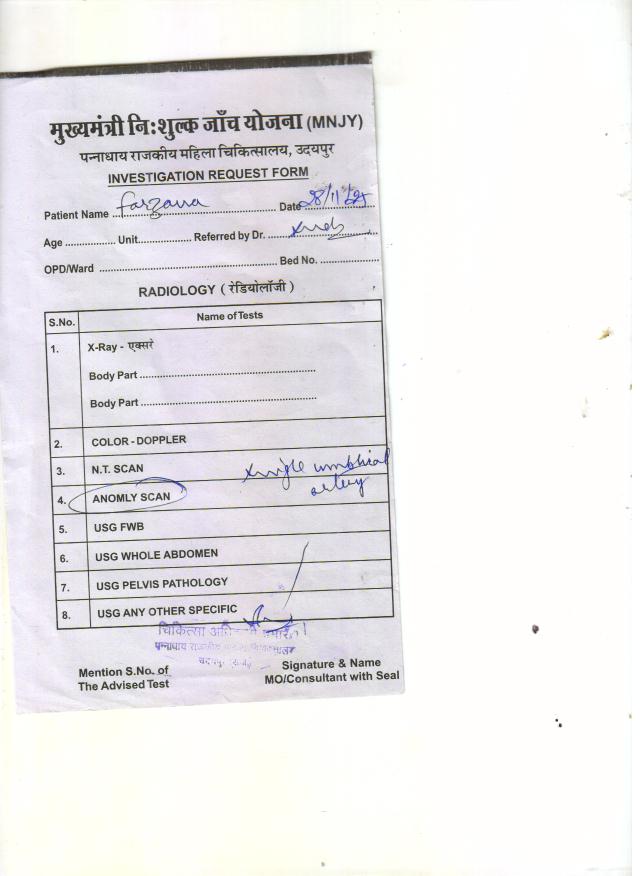 मुख्यमंत्री नि:शुल्क जाँच योजना (MNJY)
पन्नाधाय राजकीय महिला चिकित्सालय, उदयपुर
INVESTIGATION REQUEST FORM
Patient Name ........ Farzana ........ Date 28/11/
Age ................ Unit................. Referred by Dr. ........
OPD/Ward ........ Bed No. ........
RADIOLOGY ( रेडियोलॉजी )
S.No. Name of Tests
1. X-Ray - एक्सरे
Body Part ........
Body Part ........
2. COLOR - DOPPLER
3. N.T. SCAN single umbilical
4. ANOMLY SCAN artery
5. USG FWB
6. USG WHOLE ABDOMEN
7. USG PELVIS PATHOLOGY
8. USG ANY OTHER SPECIFIC
चिकित्सा
पन्नाधाय
Mention S.No. of
The Advised Test
Signature & Name
MO/Consultant with Seal